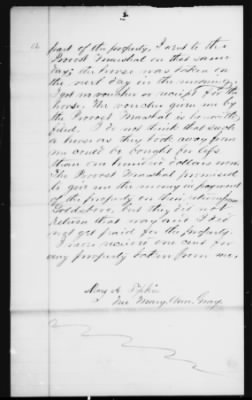 part of the property, I went to the
Provost Marshal on that same
day; the horse was taken on
the next day in the morning.
I got no voucher or receipt for the
horse. The voucher given me by
the Provost Marshal is herewith
filed. I do not think that such
a horse as they took away from
me could be bought for less
than one hundred dollars now.
The Provost Marshal promised
to give me the money in payment
of the property on their return from
Goldsboro, but they did not
return that way and I did
not get paid for the property.
I never received one cent for
any property taken from me.
Mrs Mary Ann Gray